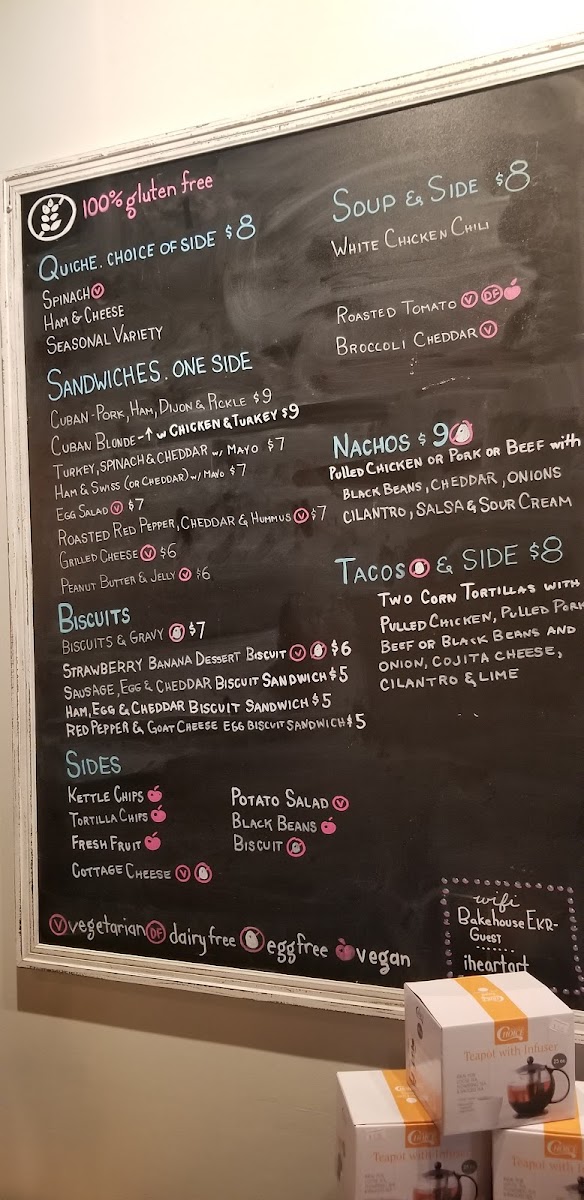 100% gluten free
QUICHE. CHOICE OF SIDE $8
SPINACH V
HAM & CHEESE
SEASONAL VARIETY
SANDWICHES. ONE SIDE
CUBAN-PORK, HAM, DIJON & PICKLE $9
CUBAN BLONDE-↑ w CHICKEN & TURKEY $9
TURKEY, SPINACH & CHEDDAR w/ MAYO $7
HAM & SWISS (OR CHEDDAR) w/ MAYO $7
EGG SALAD V $7
ROASTED RED PEPPER, CHEDDAR & HUMMUS V $7
GRILLED CHEESE V $6
PEANUT BUTTER & JELLY V $6
BISCUITS
BISCUITS & GRAVY $7
STRAWBERRY BANANA DESSERT BISCUIT V $6
SAUSAGE, EGG & CHEDDAR BISCUIT SANDWICH $5
HAM, EGG & CHEDDAR BISCUIT SANDWICH $5
RED PEPPER & GOAT CHEESE EGG BISCUIT SANDWICH $5
SIDES
KETTLE CHIPS
TORTILLA CHIPS
FRESH FRUIT
COTTAGE CHEESE V
POTATO SALAD V
BLACK BEANS
BISCUIT
SOUP & SIDE $8
WHITE CHICKEN CHILI
ROASTED TOMATO V DF
BROCCOLI CHEDDAR V
NACHOS $9
PULLED CHICKEN OR PORK OR BEEF with
BLACK BEANS, CHEDDAR, ONIONS
CILANTRO, SALSA & SOUR CREAM
TACOS & SIDE $8
TWO CORN TORTILLAS WITH
PULLED CHICKEN, PULLED PORK
BEEF OR BLACK BEANS AND
ONION, COJITA CHEESE,
CILANTRO & LIME
V vegetarian DF dairy free eggfree vegan
wifi
Bakehouse EKR-
GUEST
iheartart
CHOICE
Teapot with Infuser
CHOICE
Teapot with Infuser
Teapot with